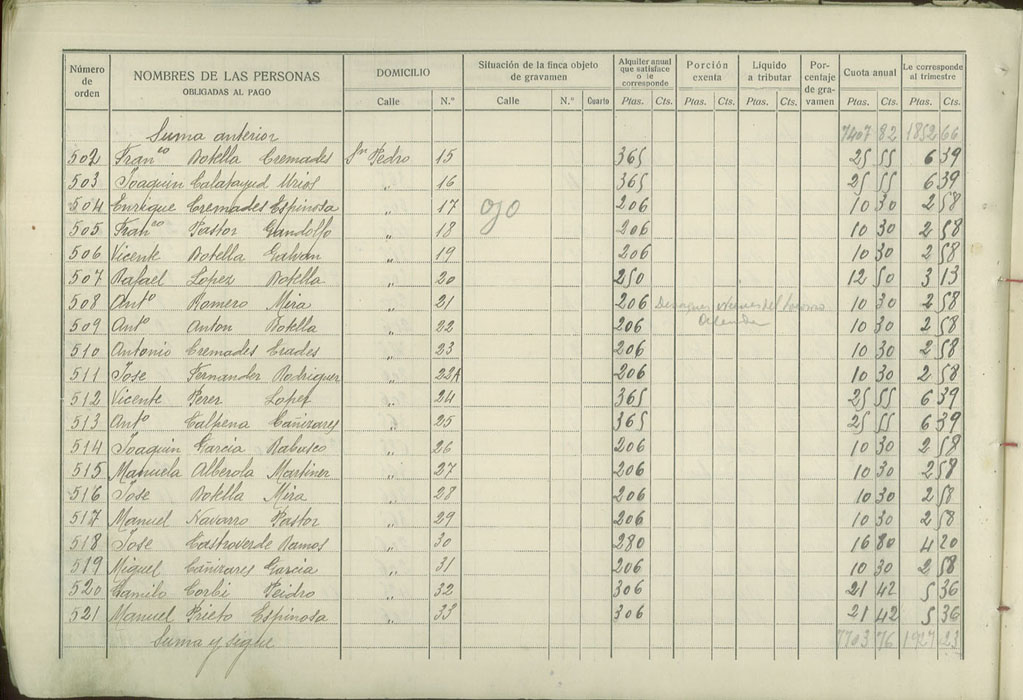 Número de orden | NOMBRES DE LAS PERSONAS OBLIGADAS AL PAGO | DOMICILIO | Situación de la finca objeto de gravamen | Alquiler anual que satisface o le corresponde | Porción exenta | Líquido a tributar | Porcentaje de gravamen | Cuota anual | Le corresponde al trimestre
Calle | N.º | Calle | N.º | Cuarto | Ptas. | Cts. | Ptas. | Cts. | Ptas. | Cts. | Ptas. | Cts. | Ptas. | Cts.
Suma anterior 7407 82 1852 66
502 Fran.co Botella Cremades Sn Pedro 15 365 25 55 6 39
503 Joaquin Calatayud Urios " 16 365 25 55 6 39
504 Enrique Cremades Espinosa " 17 ojo 206 10 30 2 58
505 Fran.co Pastor Gandolfo " 18 206 10 30 2 58
506 Vicente Botella Galvan " 19 206 10 30 2 58
507 Rafael Lopez Botella " 20 250 12 50 3 13
508 Ant.o Romero Mira " 21 206 10 30 2 58
509 Ant.o Anton Botella " 22 206 10 30 2 58
510 Antonio Cremades Crades " 23 206 10 30 2 58
511 Jose Fernandez Rodriguez " 23A 206 10 30 2 58
512 Vicente Perez Lopez " 24 365 25 55 6 39
513 Ant.o Calpena Cañizares " 25 365 25 55 6 39
514 Joaquin Garcia Rabasco " 26 206 10 30 2 58
515 Manuela Alberola Martinez " 27 206 10 30 2 58
516 Jose Botella Mira " 28 206 10 30 2 58
517 Manuel Navarro Pastor " 29 206 10 30 2 58
518 Jose Castroverde Ramos " 30 280 16 80 4 20
519 Miguel Cañizares Garcia " 31 206 10 30 2 58
520 Camilo Corbi Peidro " 32 306 21 42 5 36
521 Manuel Prieto Espinosa " 33 306 21 42 5 36
Suma y sigue 7703 76 1927 23